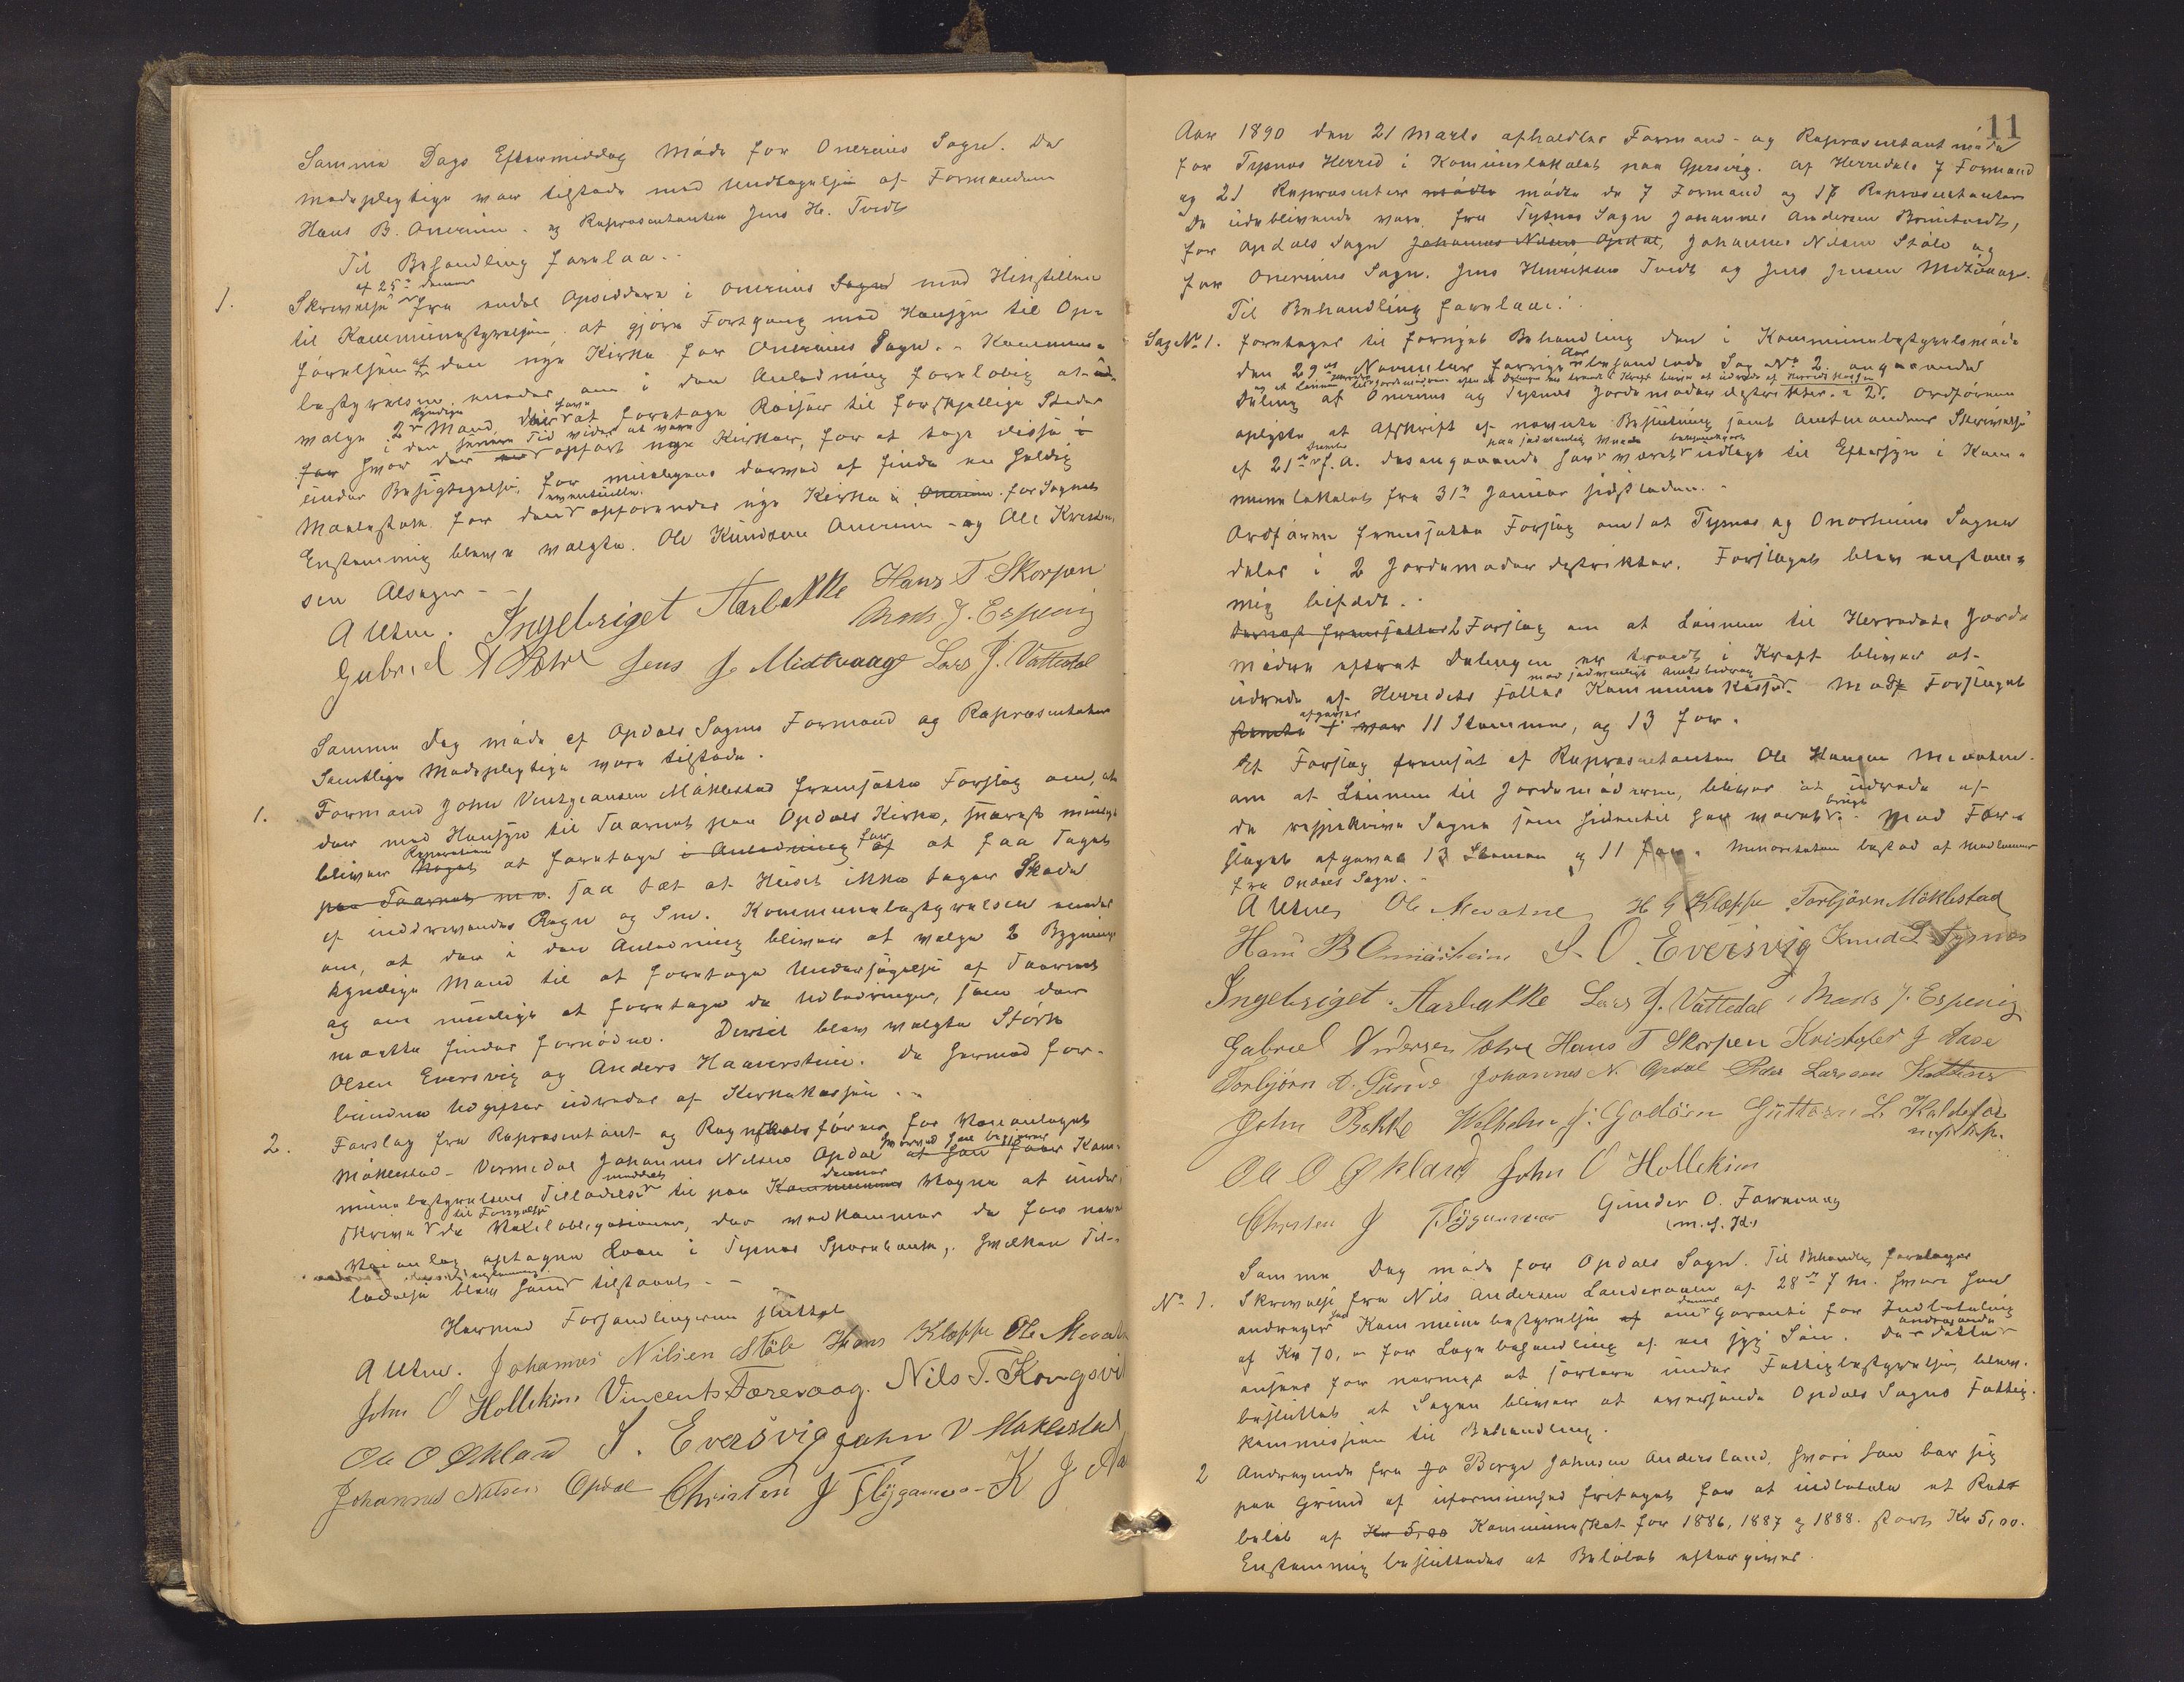 Samme Dags Eftermiddag Møde for Onereims Sogn. De
mødepligtige var tilstæde med Undtagelse af Formanden
Hans B. Onereim. og Repræsentanten Jens H. Tvedt
Til Behandling forelaa..
1. Skrivelse af 25de dennes fra endel Opsiddere i Onereims Sogn med Henstillen
til Kommunestyrelsen at gjøre Fortgang med Hensyn til Op-
førelsen af den nye Kirke for Onereims Sogn. - Kommune-
bestyrelsen enedes om i den Anledning foreløbig at ud-
vælge 2de kyndige Mænd, at foretage Reiser til forskjellige Steder
hvor der i den senere Tid vides at være opført nye Kirker, for at tage disse i
under Besigtigelse, for muligens derved at finde en heldig
Maalestok for den eventuelle opførendes nye Kirke i Onereim for Sognet
Enstemmig blev valgte. Ole Knudsen Onereim - og Ole Kristen-
sen Alsager -
A Utne. Ingebriget Aarbakke Hans T Skorpen
Mads J. Espevig
Gabriel A Sætre Jens J. Midtvaage Lars J. Vattedal
Samme Dag møde af Opdals Sogns Formænd og Repræsentanter
Samtlige Mødepligtige vare tilstæde.
1. Formand John Vintzeansen Møklestad fremsatte Forslag om, at
der med Hensyn til Taarnet paa Opdals Kirke, snarest muligt
bliver Reparation at foretage i Anledning af for at faa Taget
paa Taarnet m.v. saa tæt at Huset ikke tager Skade
af inddrivendes Regn og Sne. Kommunebestyrelsen enedes
om, at der i den Anledning bliver at vælge 2 Bygnings-
kyndige Mænd til at foretage Undersøgelse af Taarnet
og om muligt at foretage de Udbedringer, som der
maatte findes fornødne. Dertil blev valgte Størk
Olsen Eversvig og Anders Haaverstein. De hermed for-
bundne Udgifter udredes af Kirkekassen..
2. Forslag fra Repræsentant og Regnskabsfører for Veianlæget
Møklestad - Vermedal Johannes Nilsen Opdal hvorved han begjærer at han faar Kom-
munebestyrelsens Tilladelse meddelt til paa Kommunens dennes Vegne at under-
skrive til Fornyelse de Vexelobligationer, der vedkommer de for nævnte
Veianlæg optagne Laan i Tysnes Sparebank,. hvilken Til-
ladelse blev ham tilstaaet. -
Hermed Forhandlingerne sluttet
A Utne. Johannes Nilsen Støle Hans Kleppe Ole Mevatne
John O Hollekim Vincents Færevaag. Nils T. Kongsvi
Ole O Økland S. Eversvig John V Møklestad
Johannes Nilsen Opdal Christen J Flygansvær K J Aa
11
Aar 1890 den 21 Marts afholdtes Formand- og Repræsentant møde
for Tysnes Herred i Kommunelokalet paa Gjersvig. af Herredets 7 Formænd
og 21 Repræsentanter mødte mødte de 7 Formænd og 17 Repræsentanter
De udeblivende vare, fra Tysnes Sogn Johannes Andersen Breitvedt,
for Opdals Sogn Johannes Nilsen Opdal, Johannes Nilsen Støle og
for Onereims Sogn. Jens Henriksen Tvedt og Jens Jensen Midtvaage.
Til Behandling forelaa:
Sag No 1. foretoges til fornyet Behandling den i Kommunebestyrelsesmøde
den 29de November forrige Aar behandlede Sag No 2. angaaende
Deling af Onereims og Tysnes Jordemoderdistrikter i 2de. Ordføreren
oplyste at Afskrift af nævnte Beslutning samt Amtmandens Skrivelse
af 21de Decembr f. A. desangaaende har paa sædvanlig Maade bekjendtgjort været udlagt til Eftersyn i Kom-
munelokalet fra 31te Januar sidstleden. -
Ordføreren fremsatte Forslag om 1 at Tysnes og Onereims Sogne
deles i 2 Jordemoderdistrikter. Forslaget blev enstem-
mig bifaldt..
Dernæst fremsattes 2 Forslag om at Lønnen til Herredets Jorde-
mødre efterat Delingen er traadt i Kraft bliver at
udrede af Herredets fælles Kommunekasse med sædvanligt Amtsbidrag. Mod Forslaget
afgaves 11 Stemmer, og 13 for.
Et Forslag fremsat af Repræsentanten Ole Hansen Mevatne
om at Lønnen til Jordemødrene, bliver at udrede af
de respektive Sogne som hidentil har været brugt. Mod For-
slaget afgaves 13 Stemmer og 11 for. Minoriteten bestod af Medlemmer
fra Opdals Sogn. -
A Utne, Ole Mevatne H G Kleppe Torbjørn Møklestad
Hans B Onnarheim S. O. Eversvig Knud L Tysnes
Ingebriget Aarbakke Lars J. Vattedal Mads J. Espevig
Gabriel Andersen Sætre Hans T Skorpen Kristofer J Aase
Torbjørn A. Gunde Johannes N. Opdal Peder Larsen
John Bakke Wilhelm J. Godøen Guttorm L. Kaldefos
Ole O Økland John O Hollekim
Christen J Flygansvær Gunder O. Farevaag
(m. f. H.)
Samme Dag møde for Opdals Sogn. Til Behandling foretoges
No 1. Skrivelse fra Nils Andersen Landevaalen af 28de f M. hvori han
andrager hos Kommunebestyrelsen af om dennes Garanti for Indbetaling
af Kr 70, - for Lægebehandling af en syg Søn. Da dette andragende
ansees for nærmest at sortere under Fattigbestyrelsen, blev
besluttet at Sagen bliver at oversende Opdals Sogns Fattig-
kommission til Behandling.
2 Andragende fra Jo Berge Johnsen Andersland, hvori han bær sig
paa Grund af uformuenhed fritaget for at indbetale et Rest-
beløb af Kr 5,00 Kommuneskat for 1886, 1887 og 1888. stort Kr 5,00.
Enstemmig besluttedes at Beløbet eftergives.